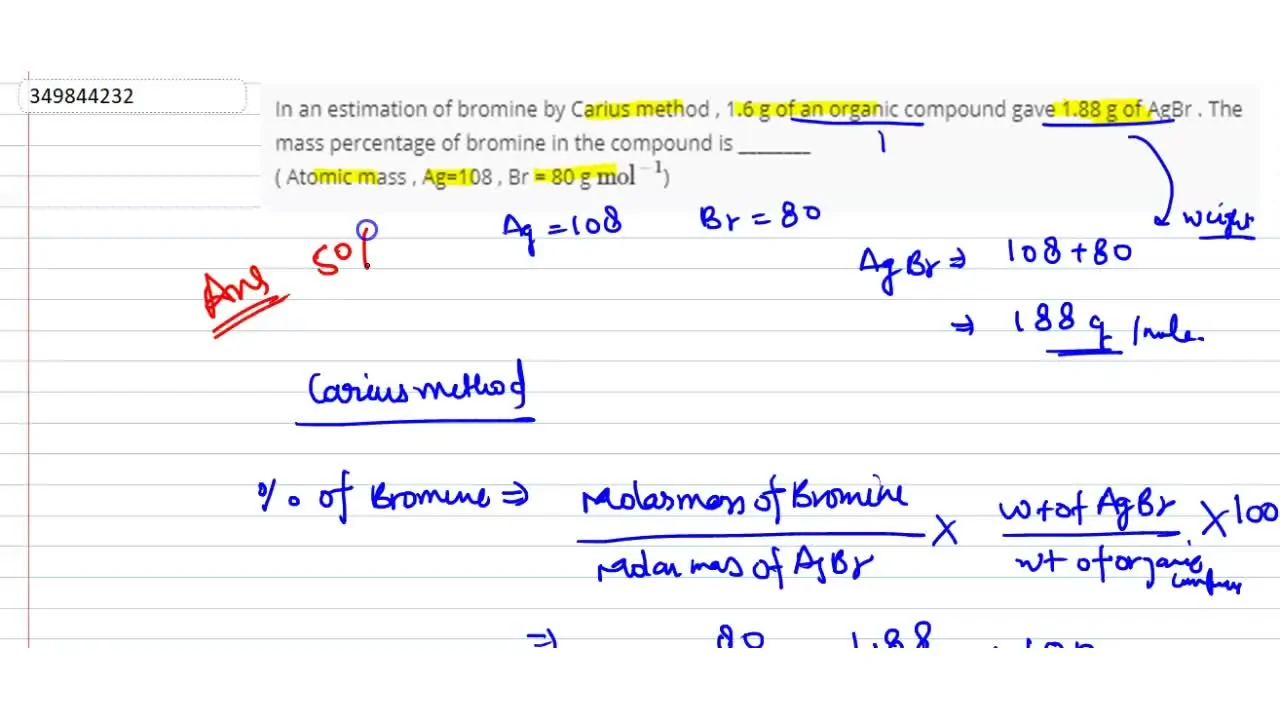 349844232
In an estimation of bromine by Carius method , 1.6 g of an organic compound gave 1.88 g of AgBr . The
mass percentage of bromine in the compound is ________
( Atomic mass , Ag=108 , Br = 80 g mol⁻¹)
Ag = 108 Br = 80
weight
Ans 50
AgBr ⇒ 108 + 80
⇒ 188 g /mole.
Carius method
% of Bromine ⇒ Molar mass of Bromine / Molar mass of AgBr × wt of AgBr / wt of organic × 100
⇒ 80 1.88 100